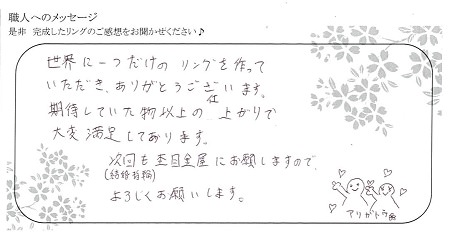 職人へのメッセージ
是非 完成したリングのご感想をお聞かせください♪
世界に一つだけの リングを作って
いただき、ありがとうございます。
期待していた物以上の 仕上がりで
大変満足しております。
次回も 杢目金屋にお願しますので、
(結婚指輪)
よろしくお願いします。
アリガトウ